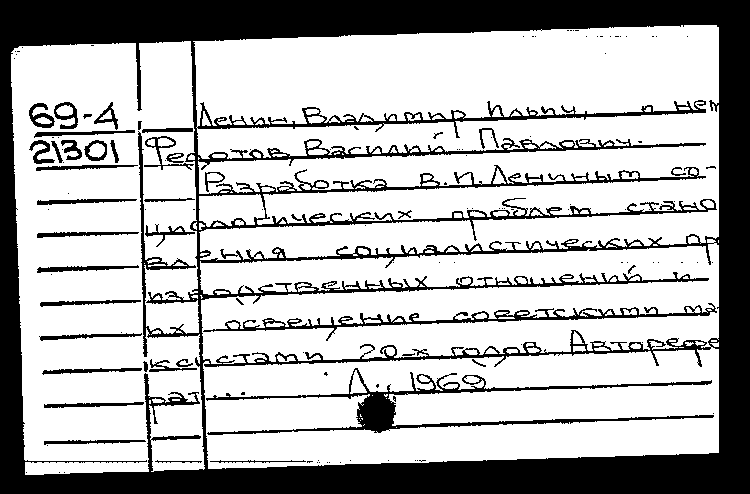 69-4 Ленин, Владимир Ильич, о нем
21301 Федотов, Василий Павлович.
Разработка В.И.Лениным со-
циологических проблем стано
вления социалистических пр
изводственных отношений и
их освещение советскими ма
ксистами 20-х годов. Авторефе
рат... Л., 1969